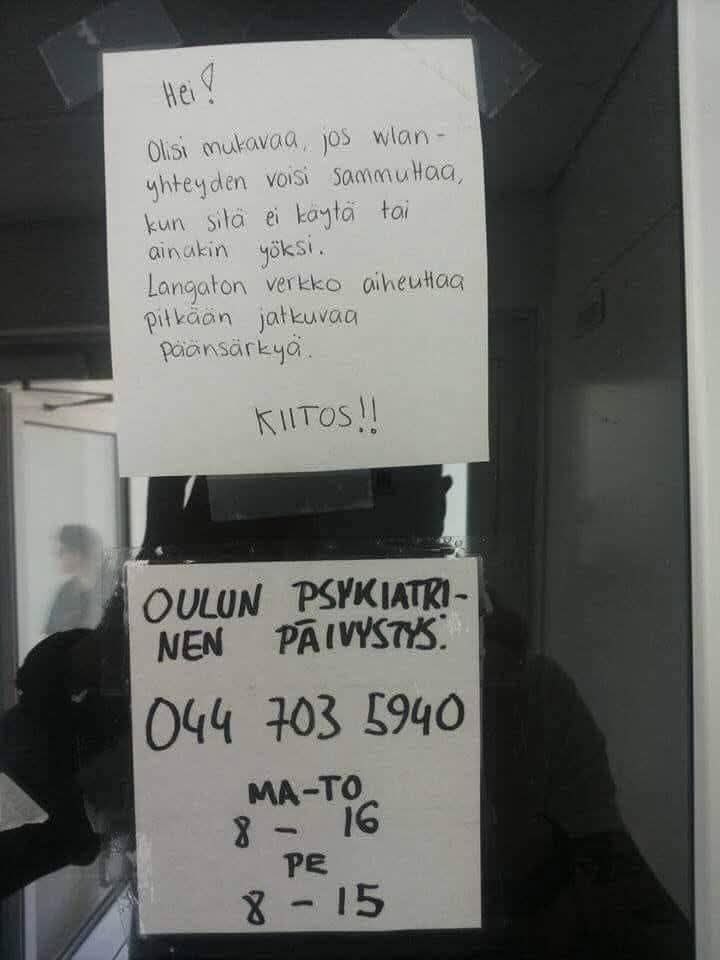 Hei!
Olisi mukavaa, jos wlan-
yhteyden voisi sammuttaa,
kun sitä ei käytä tai
ainakin yöksi.
Langaton verkko aiheuttaa
pitkään jatkuvaa
päänsärkyä.
KIITOS!!
OULUN PSYKIATRI-
NEN PÄIVYSTYS:
044 703 5940
MA-TO
8 - 16
PE
8 - 15